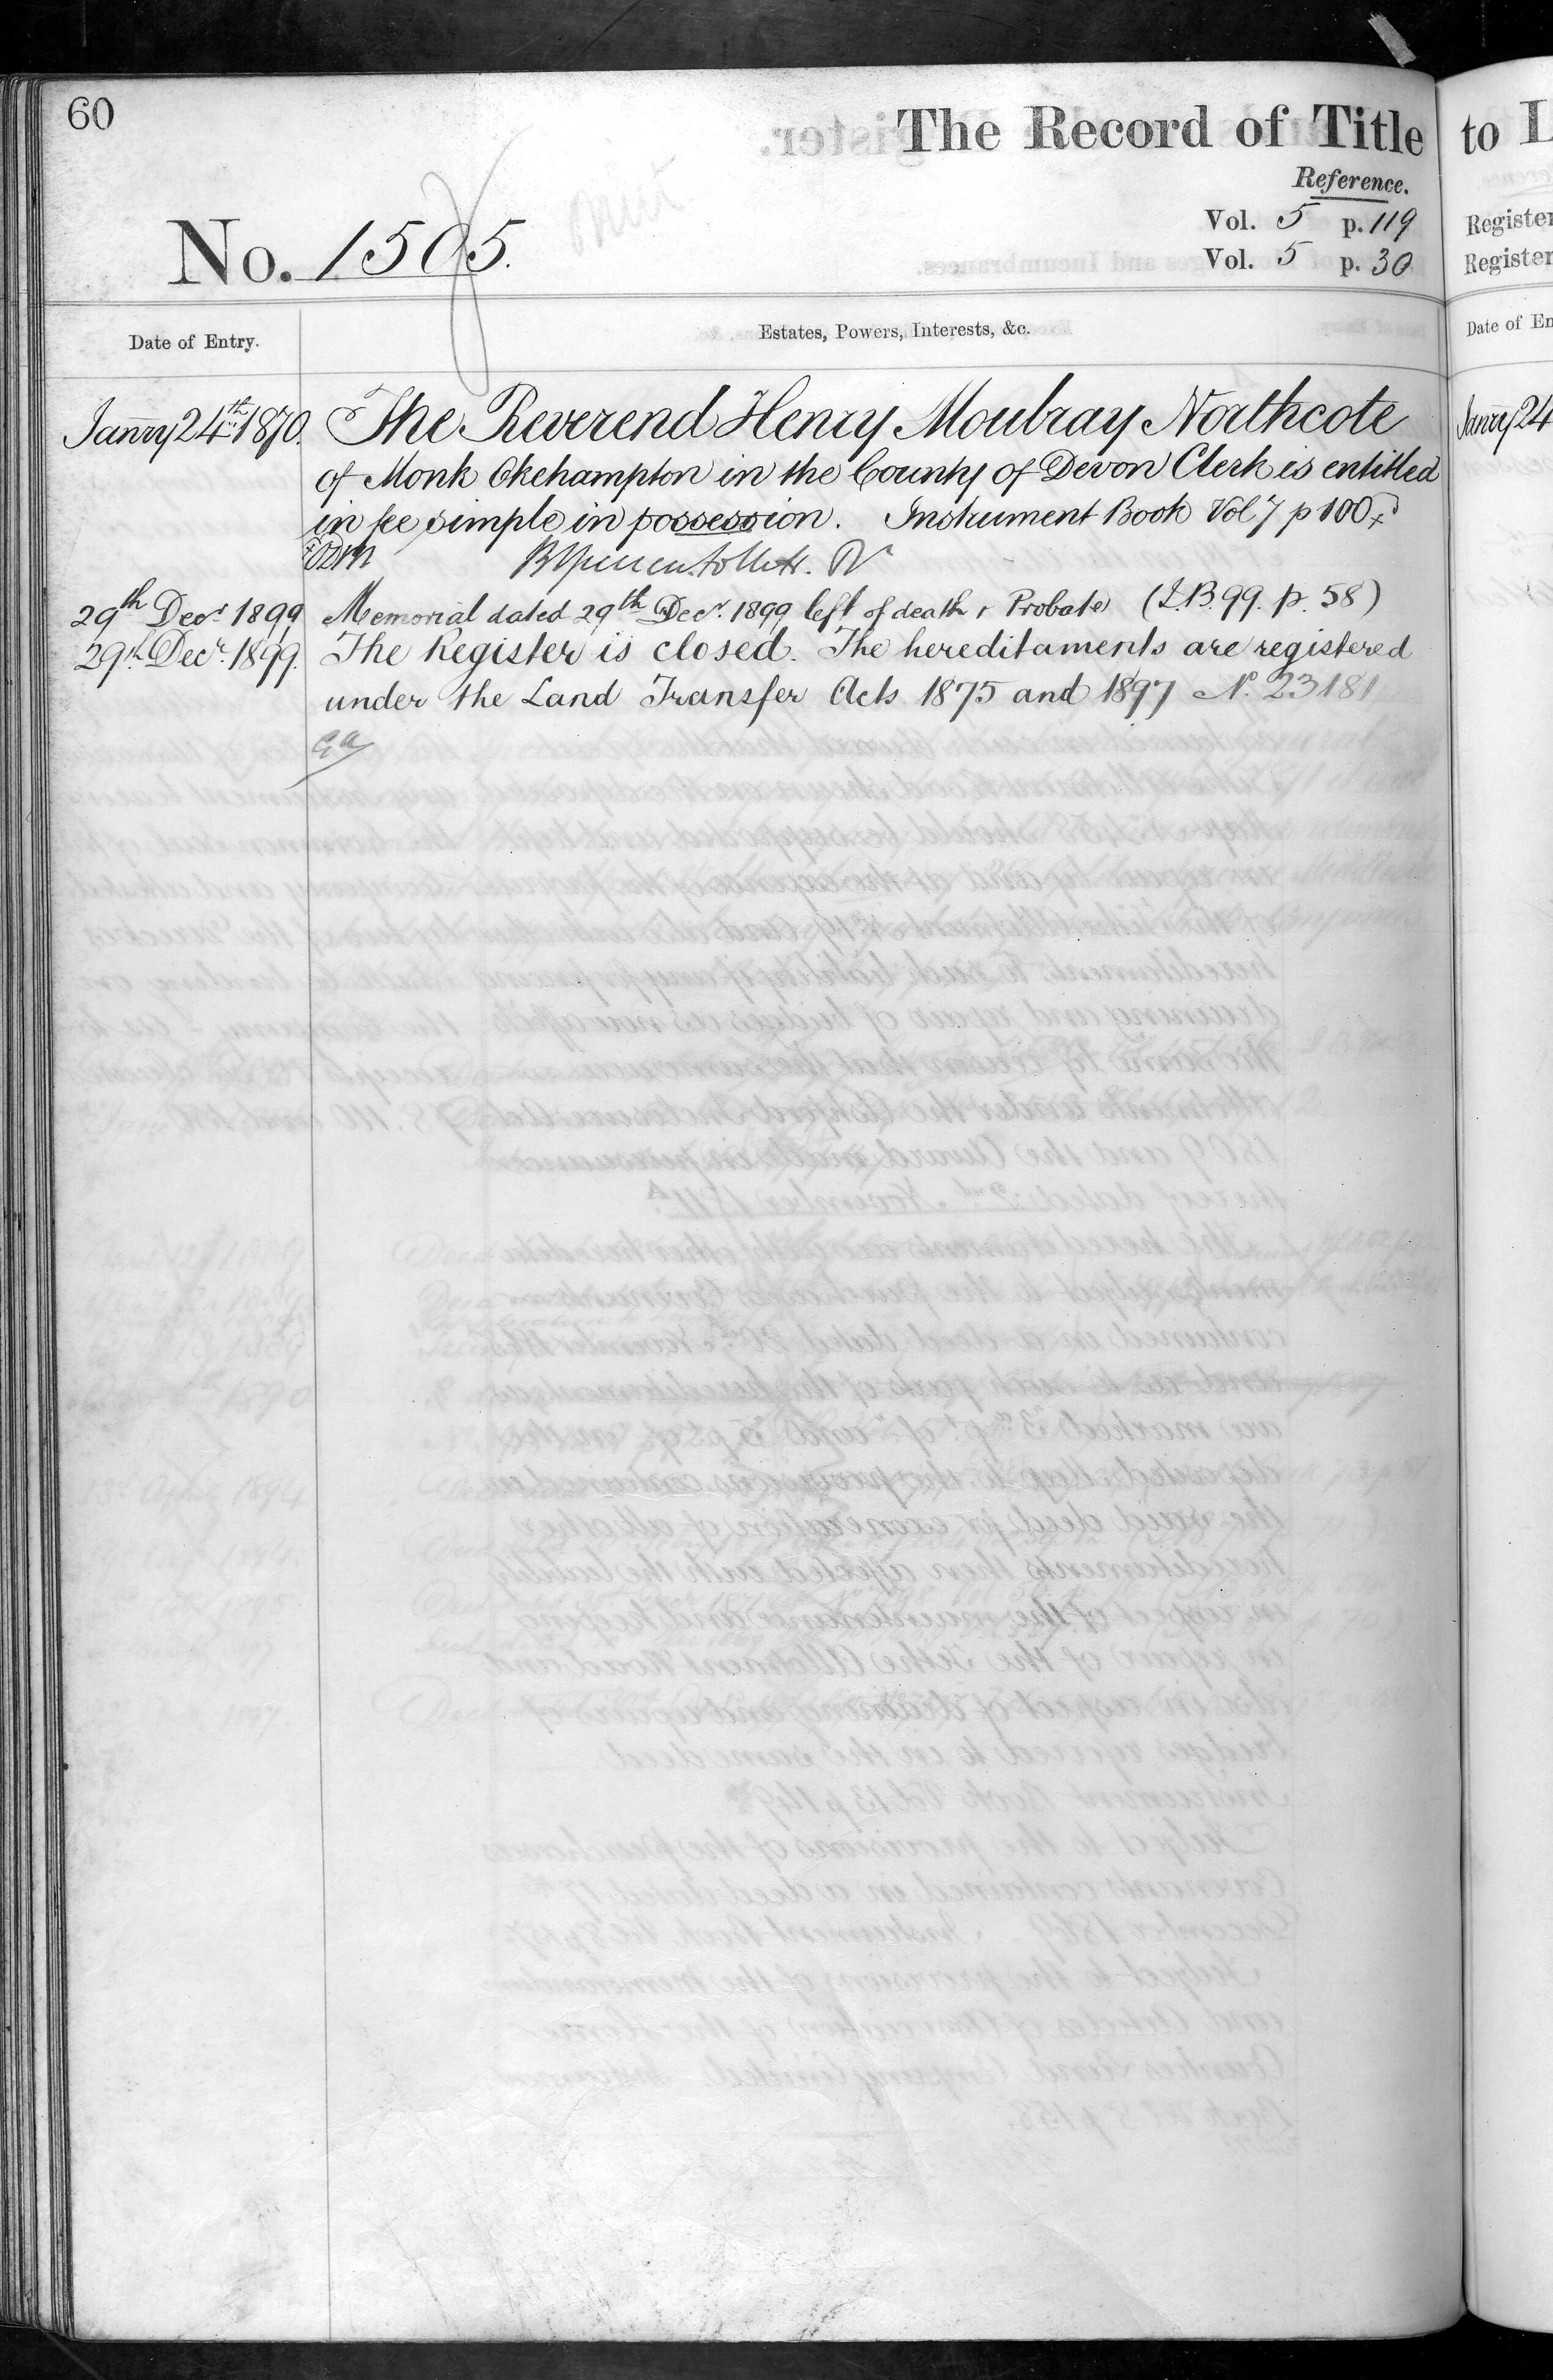 60
The Record of Title
to L
Reference.
No. 1505.
Vol. 5 p. 119
Vol. 5 p. 30
Register
Register
Date of Entry.
Estates, Powers, Interests, &c.
Date of En
Janry 24th 1870. The Reverend Henry Moubray Northcote
Janry 24
of Monk Okehampton in the County of Devon Clerk is entitled
in fee simple in possession. Instrument Book Vol 7 p 100
29th Decr 1899 Memorial dated 29th Decr. 1899 left of death & Probate (I.B. 99. p. 58)
29th Decr. 1899. The Register is closed. The hereditaments are registered
under the Land Transfer Acts 1875 and 1897 No. 23181